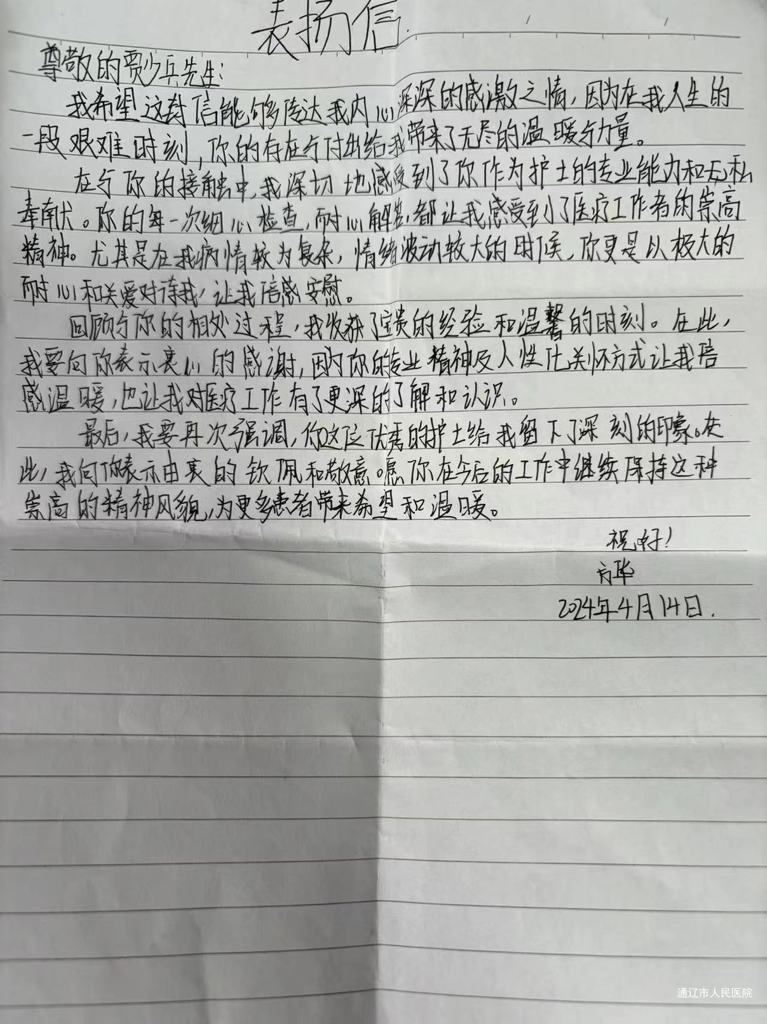 表扬信
尊敬的贾少兵先生:
我希望这封信能够传达我内心深深的感激之情，因为在我人生的
一段艰难时刻，你的存在与付出给我带来了无尽的温暖与力量。
在与你的接触中，我深切地感受到了你作为护士的专业能力和无私
奉献。你的每一次细心检查，耐心解答，都让我感受到了医疗工作者的崇高
精神。尤其是在我病情较为复杂，情绪波动较大的时候，你更是以极大的
耐心和关爱对待我，让我倍感安慰。
回顾与你的相处过程，我收获了宝贵的经验和温馨的时刻。在此，
我要向你表示衷心的感谢，因为你的专业精神及人性化关怀方式让我倍
感温暖，也让我对医疗工作有了更深的了解和认识。
最后，我要再次强调，你这位优秀的护士给我留下了深刻的印象。在
此，我向你表示由衷的钦佩和敬意。愿你在今后的工作中继续保持这种
崇高的精神风貌，为更多患者带来希望和温暖。
祝好!
2024年4月14日.
通辽市人民医院